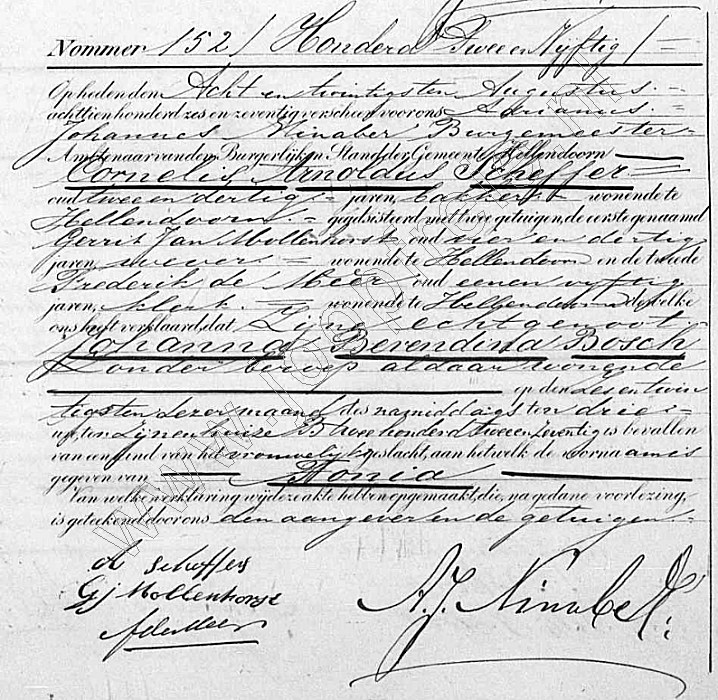 Nommer 152 / Honderd Twee en Vijftig /=
Op heden den Acht en twintigsten Augustus =
achttienhonderd zes en zeventig verscheen voor ons Adrianus =
Johannes Ninaber Burgemeester =
Ambtenaar van den Burgerlijken Stand der Gemeente Hellendoorn
Cornelis Arnoldus Scheffer =
oud twee en dertig jaren, bakker wonende te
Hellendoorn = geadsisteerd met twee getuigen, de eerste genaamd
Gerrit Jan Mollenhorst oud vier en dertig
jaren, wever = wonende te Hellendoorn en de tweede
Frederik de Meer oud een en vijftig
jaren, klerk = wonende te Hellendoorn dewelke
ons heeft verklaard, dat Zijne echtgenoote
Johanna Berendina Bosch
zonder beroep aldaar wonende
op den zes en twin
tigsten dezer maand des nagmiddags ten drie =
ure, ten zijnen huize B twee honderd twee en zeventig is bevallen
van een kind van het vrouwelijk geslacht, aan hetwelk de voornaam is
gegeven van Honia
Van welke verklaring wij deze akte hebben opgemaakt, die, na gedane voorlezing,
is geteekend door ons den aangever en de getuigen =
Scheffer
GJ Mollenhorst
A.J. Ninaber
F de Meer